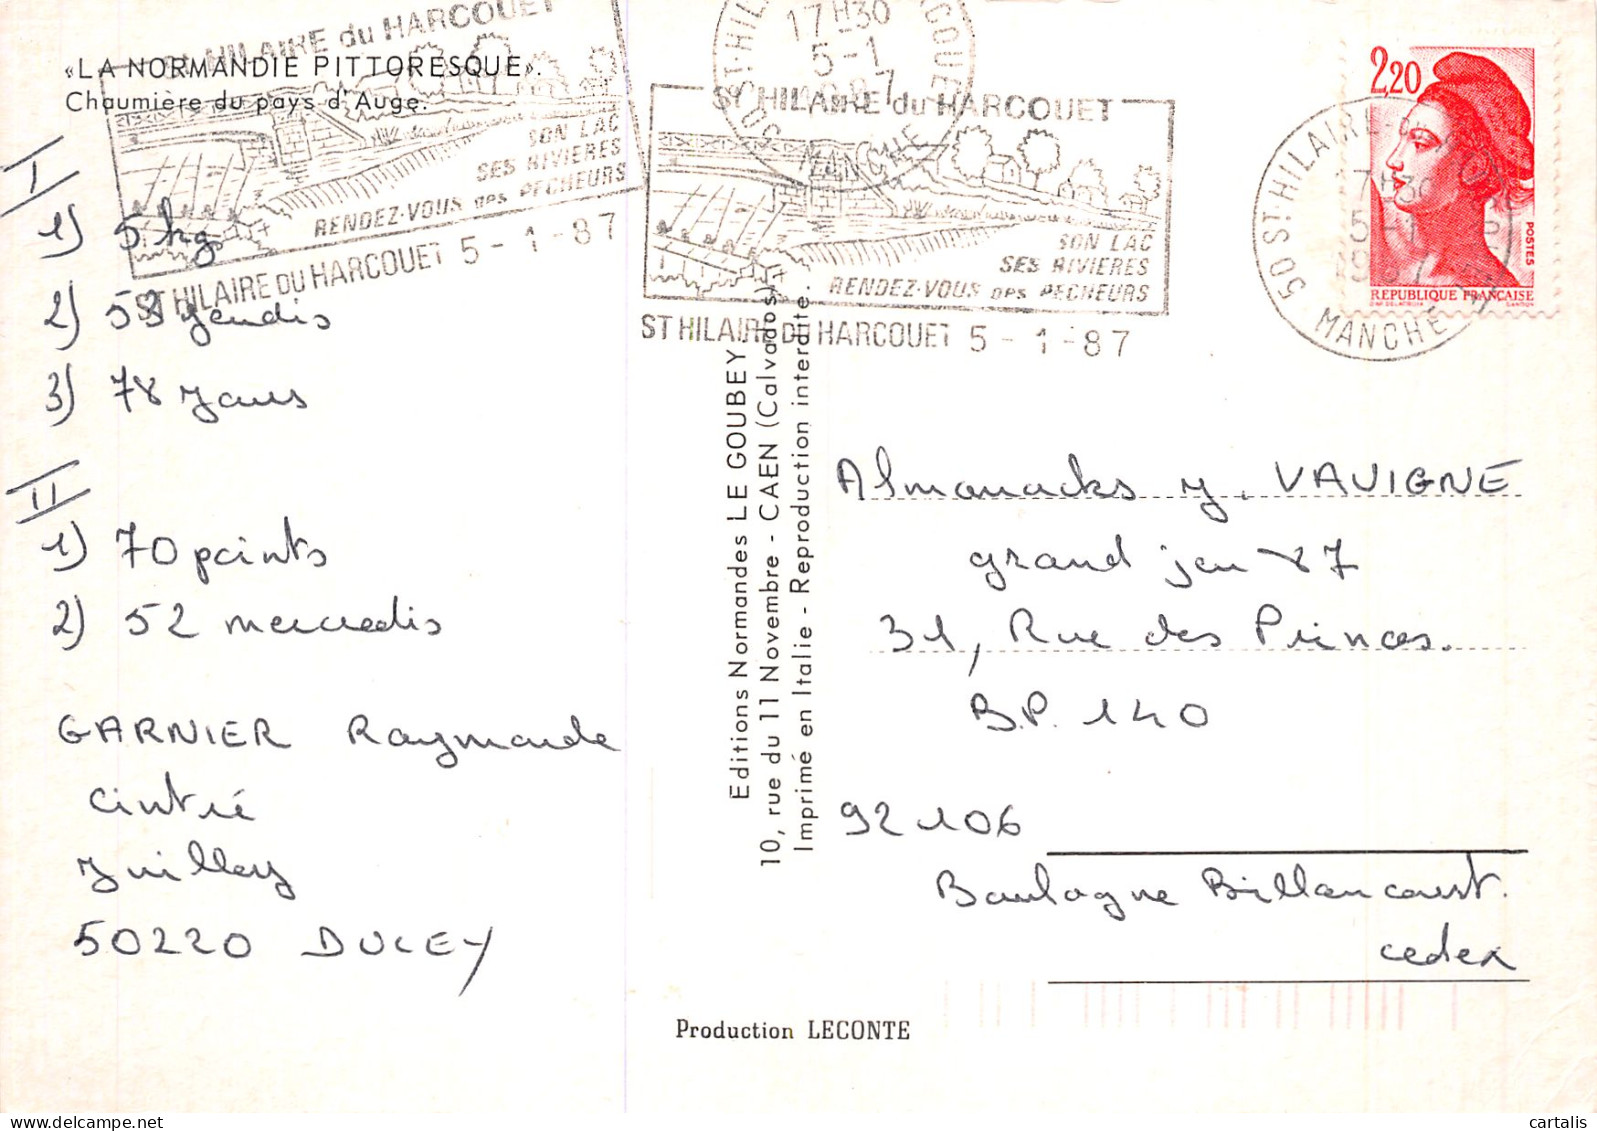 «LA NORMANDIE PITTORESQUE».
Chaumière du pays d'Auge.
ST HILAIRE du HARCOUET
SON LAC
SES RIVIERES
RENDEZ-VOUS des PECHEURS
ST HILAIRE DU HARCOUET 5 - 1 - 87
17H30
5-1
1987
50 ST HILAIRE DU HARCOUET
MANCHE
ST HILAIRE du HARCOUET
SON LAC
SES RIVIERES
RENDEZ-VOUS des PECHEURS
ST HILAIRE DU HARCOUET 5 - 1 - 87
2,20
POSTES
REPUBLIQUE FRANÇAISE
50 ST HILAIRE
17H30
5-1
1987
MANCHE
I
1) 5 kg
2) 53 jeudis
3) 78 jours
II
1) 70 points
2) 52 mercredis
GARNIER Raymonde
Cintré
Juilley
50220 DUCEY
Editions Normandes LE GOUBEY
10, rue du 11 Novembre - CAEN (Calvados)
Imprimé en Italie - Reproduction interdite.
Almanacks J. VAVIGNE
grand jeu 87
31, Rue des Princes.
B.P. 140
92106
Boulogne Billancourt.
cedex
Production LECONTE
cartalis